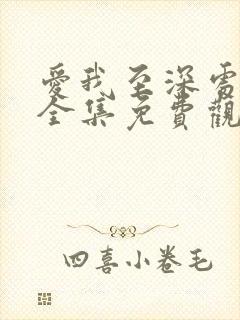 愛我至深電
全集免費觀
四喜小卷毛